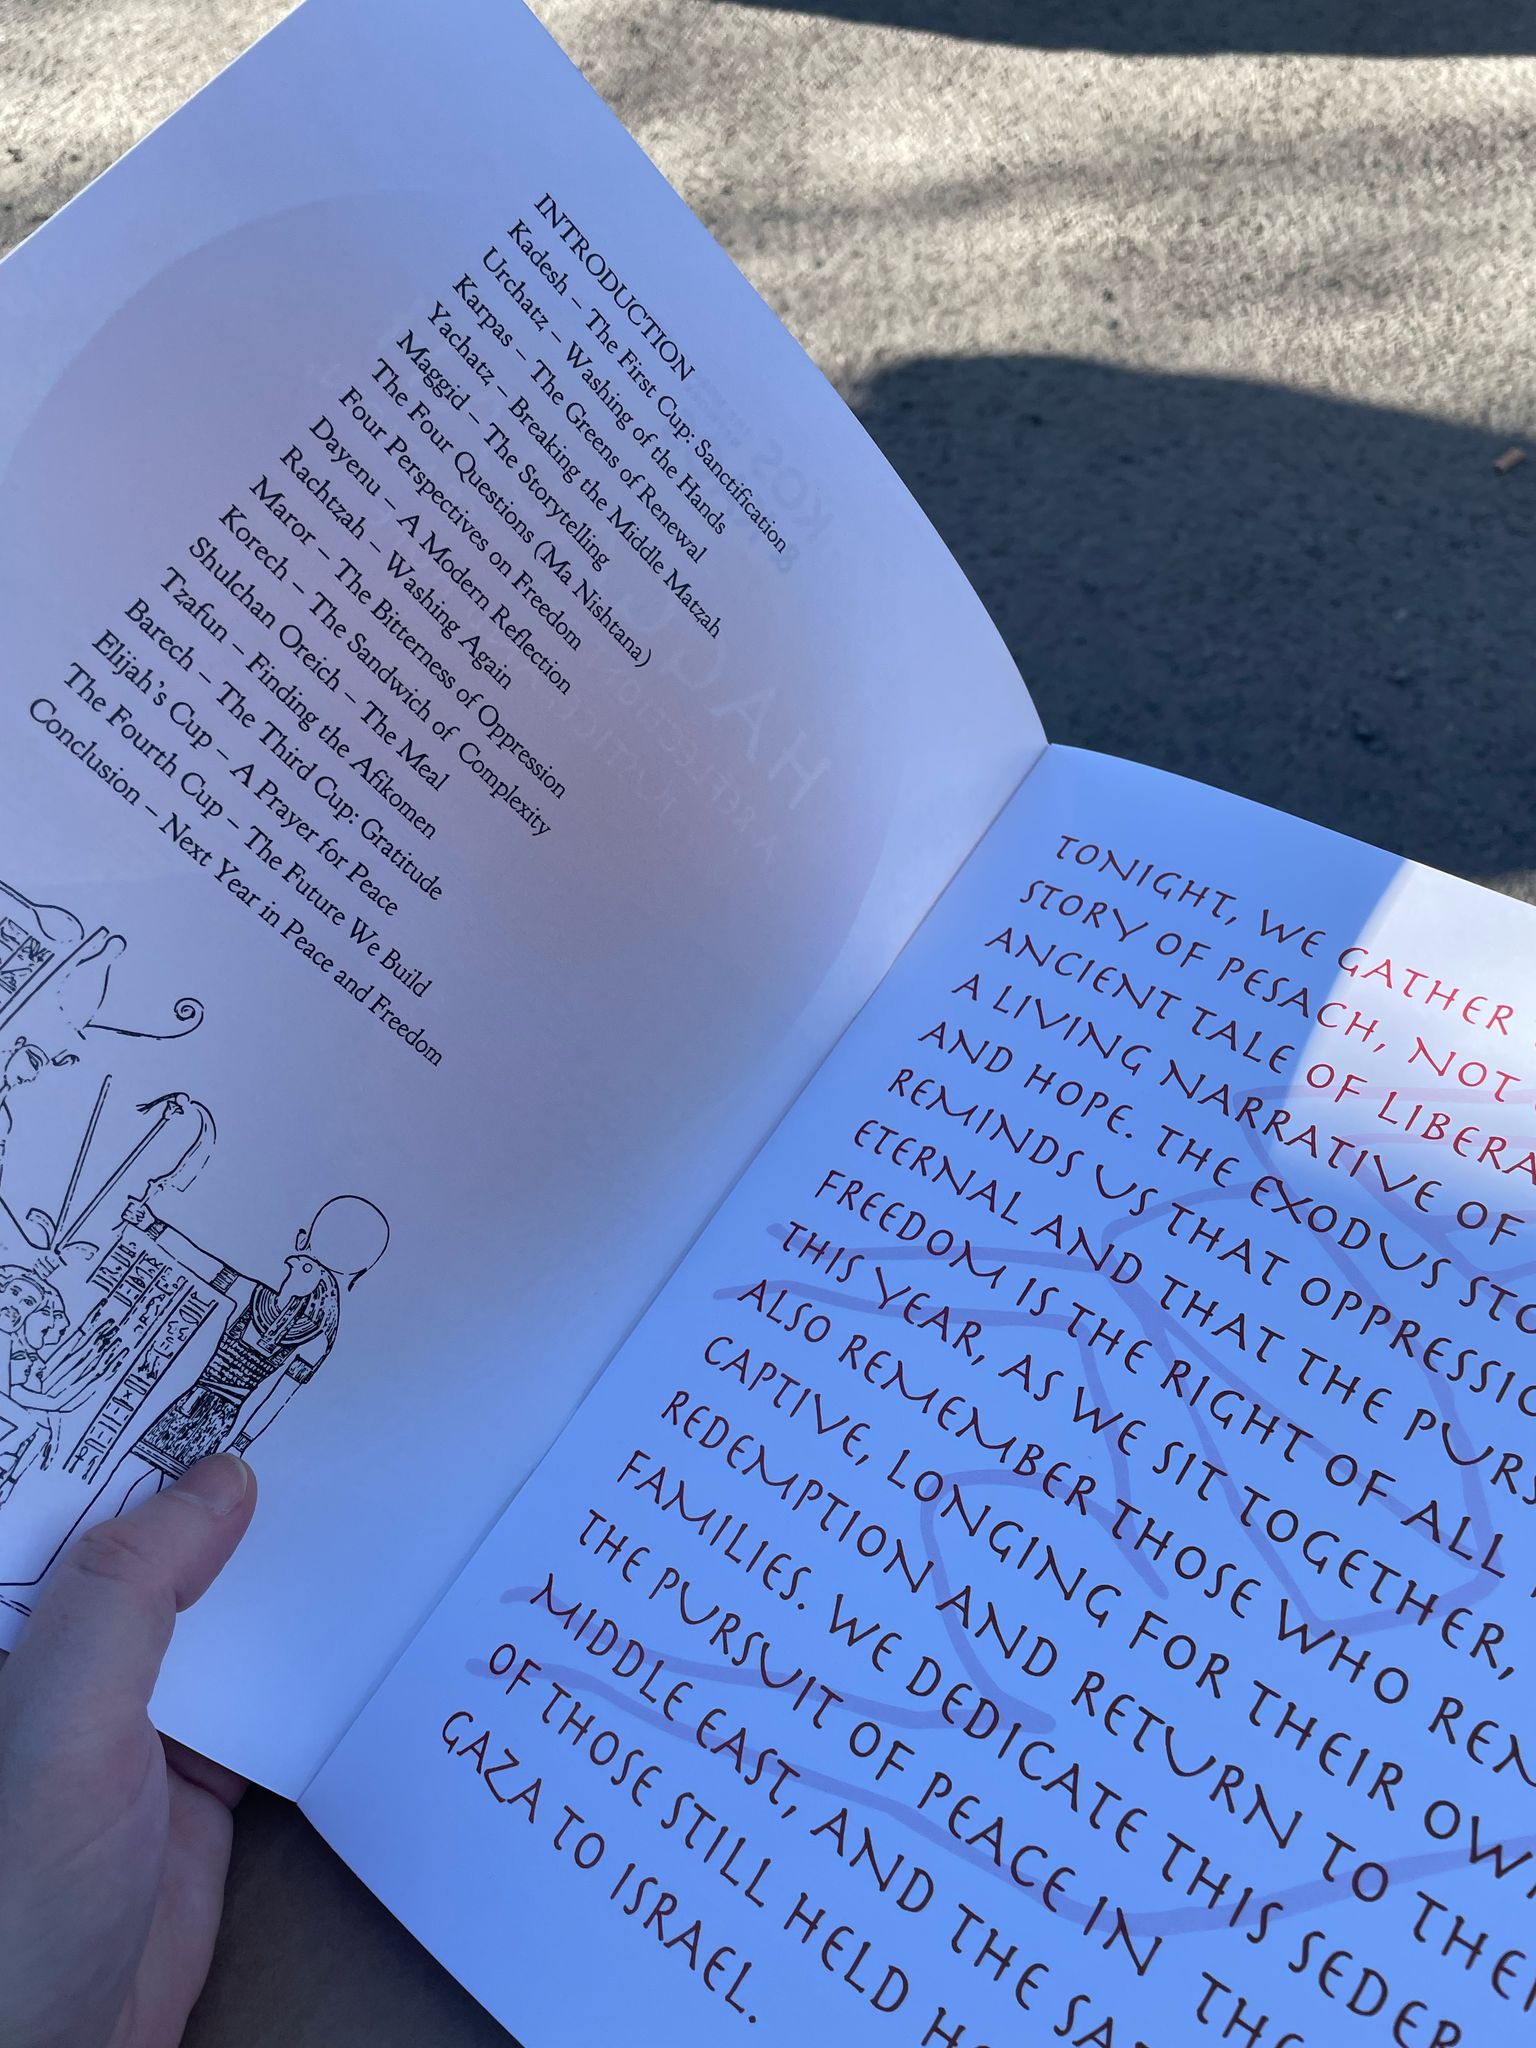 INTRODUCTION
Kadesh – The First Cup: Sanctification
Urchatz – Washing of the Hands
Karpas – The Greens of Renewal
Yachatz – Breaking the Middle Matzah
Maggid – The Storytelling
The Four Questions (Ma Nishtana)
Four Perspectives on Freedom
Dayenu – A Modern Reflection
Rachtzah – Washing Again
Maror – The Bitterness of Oppression
Korech – The Sandwich of Complexity
Shulchan Oreich – The Meal
Tzafun – Finding the Afikomen
Barech – The Third Cup: Gratitude
Elijah's Cup – A Prayer for Peace
The Fourth Cup – The Future We Build
Conclusion – Next Year in Peace and Freedom
TONIGHT, WE GATHER
STORY OF PESACH, NOT
ANCIENT TALE OF LIBERA
A LIVING NARRATIVE OF
AND HOPE. THE EXODUS STO
REMINDS US THAT OPPRESSIO
ETERNAL AND THAT THE PURS
FREEDOM IS THE RIGHT OF ALL
THIS YEAR, AS WE SIT TOGETHER,
ALSO REMEMBER THOSE WHO REM
CAPTIVE, LONGING FOR THEIR OW
REDEMPTION AND RETURN TO THEI
FAMILIES. WE DEDICATE THIS SEDER
THE PURSUIT OF PEACE IN THE
MIDDLE EAST, AND THE SA
OF THOSE STILL HELD HO
GAZA TO ISRAEL.